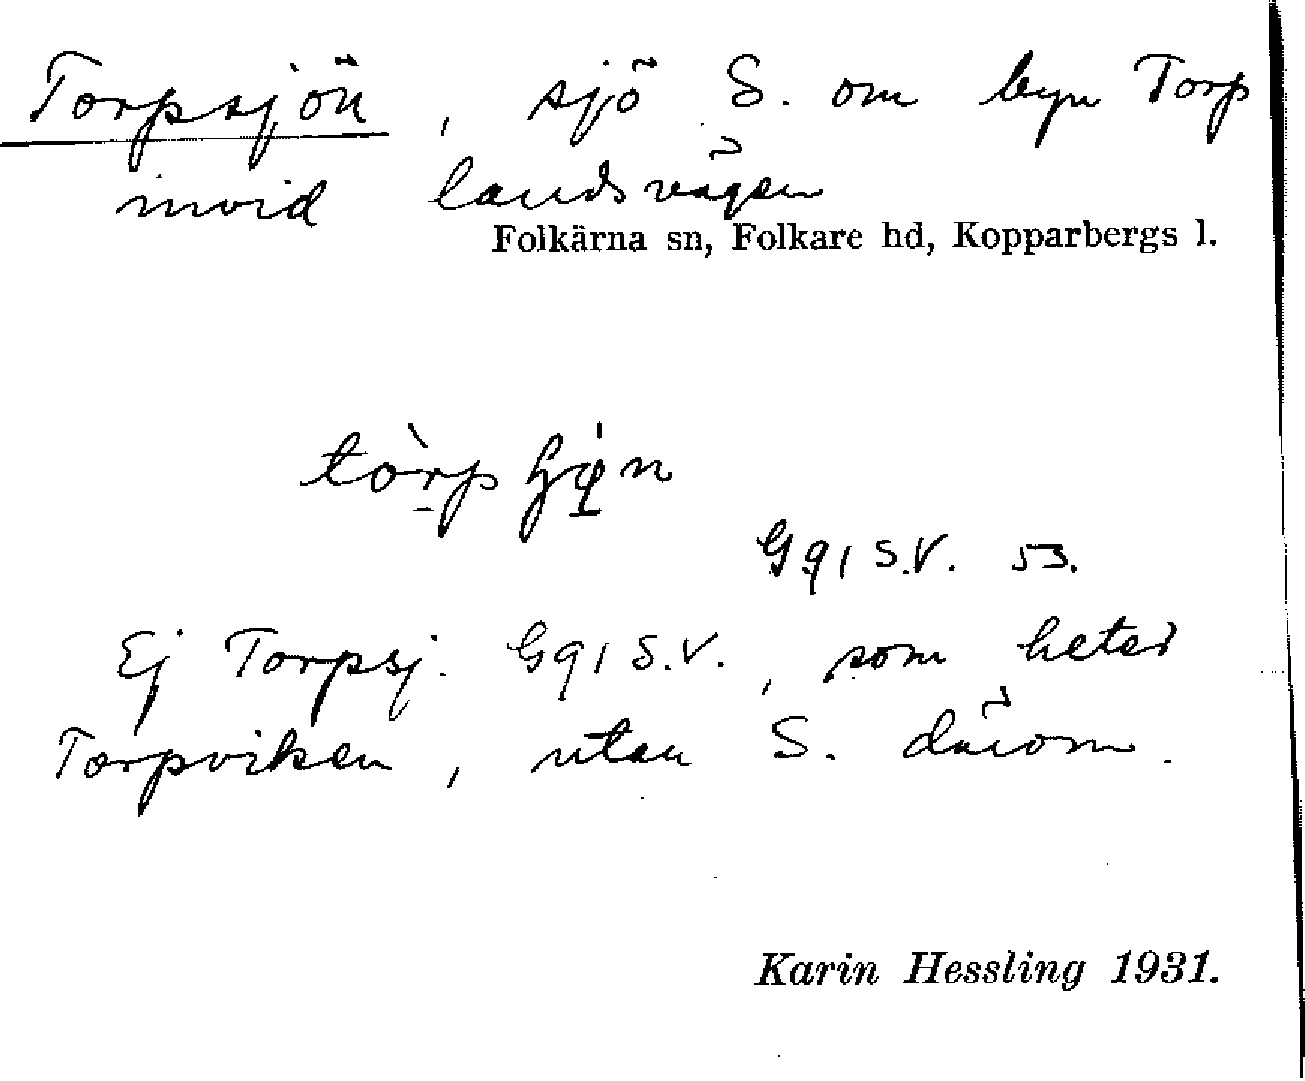 Torpsjön, sjö S. om byn Torp
invid landsvägen
Folkärna sn, Folkare hd, Kopparbergs l.
Gq1 S.V. 53.
Ej Torpsj. Gq1 S.V., som heter
Torpviken, utan S. därom.
Karin Hessling 1931.